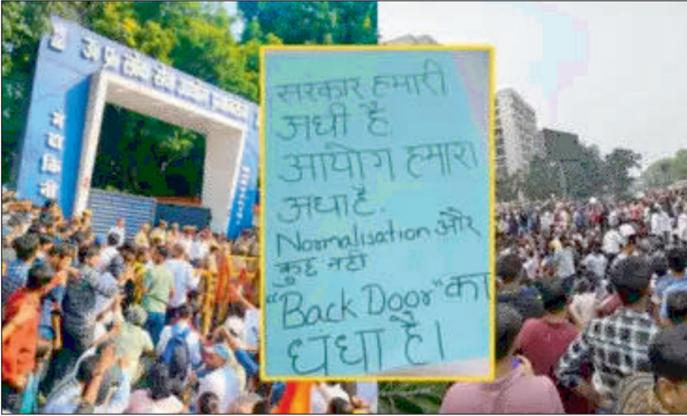 उ प्र लोक सेवा आयोग
सरकार हमारी
अधी है
आयोग हमारा
अधाहै.
Normalisation और
कुछ नही
"Back Door" का
धधा है।